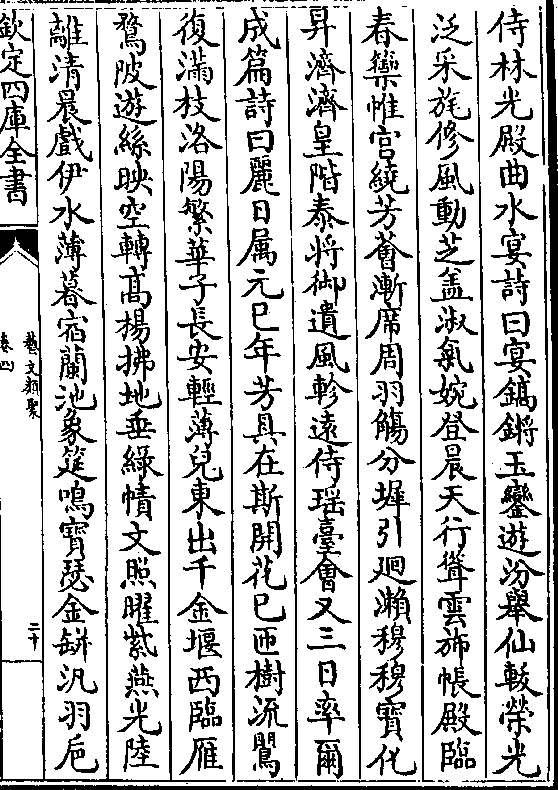 侍林光殿曲水宴詩曰宴鎬鏘玉鑾遊汾舉仙軷榮光
泛采旄修風動芝盖淑氣婉登晨天行聳雲斾帳殿臨
春籞帷宫繞芳薈漸席周羽觴分墀引迴瀨穆穆寶化
昇濟濟皇階泰将御遺風軫遠侍瑶臺會又三日率爾
成篇詩曰麗日属元巳年芳具在斯開花已匝樹流鶯
復滿枝洛陽繁華子長安輕薄兒東出千金堰西臨雁
鶩陂遊絲映空轉髙楊拂地垂綠幘文照曜紫燕光陸
離清晨戲伊水薄暮宿蘭池象筵鳴寶瑟金缾汎羽巵
欽定四庫全書
藝文類聚
卷四
二十